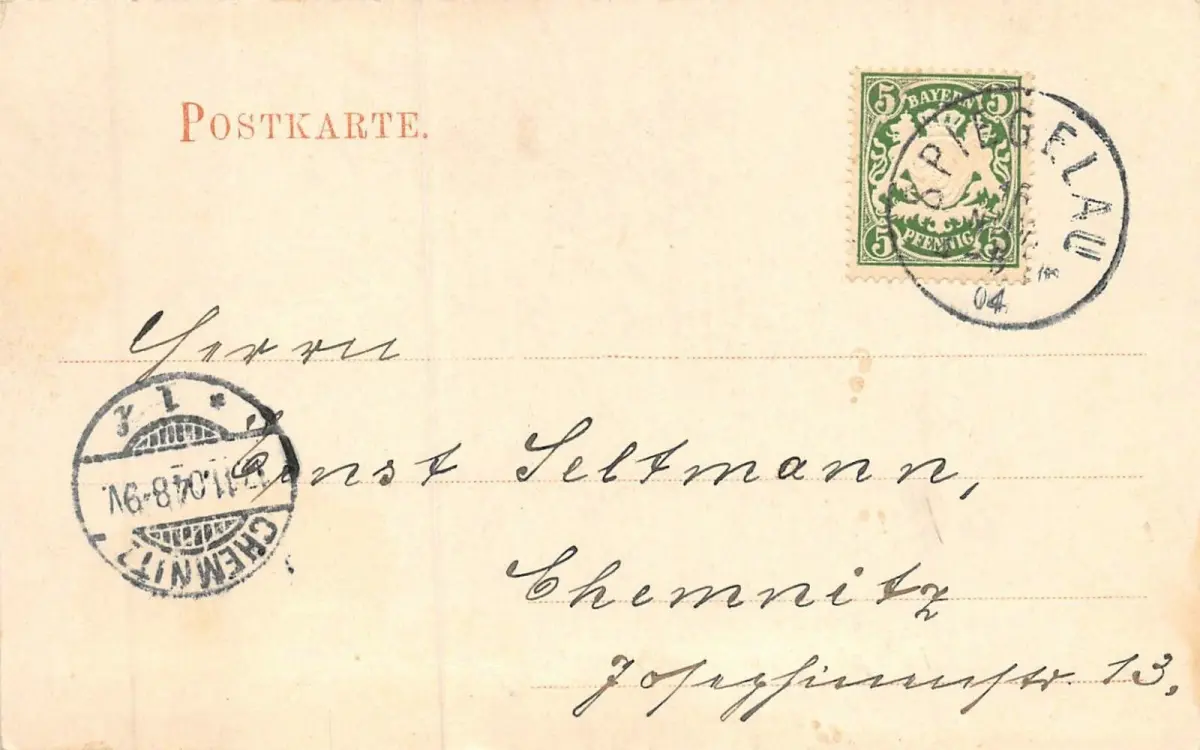 POSTKARTE.
5 BAYERN 5
5 PFENNIG 5
SPIEGELAU
04
Herrn
Ernst Seltmann,
Chemnitz
Josephinenstr. 13,
* 1
11.04 8-9V.
CHEMNITZ